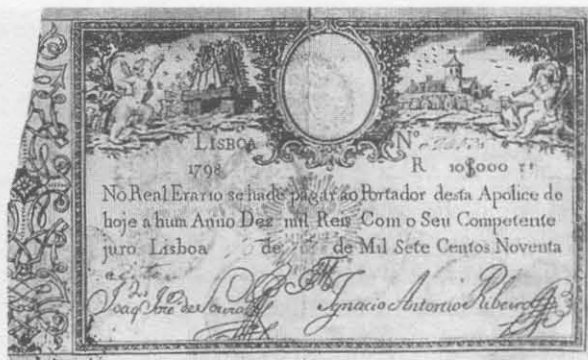 LISBOA Nº
1798 R 10$000 rˢ
No Real Erario se hade pagar ao Portador desta Apolice de
hoje a hum Anno Dez mil Reis Com o Seu Competente
juro Lisboa de de Mil Sete Centos Noventa
e oito
Joaq. Jose de Souza Ignacio Antonio Ribeiro